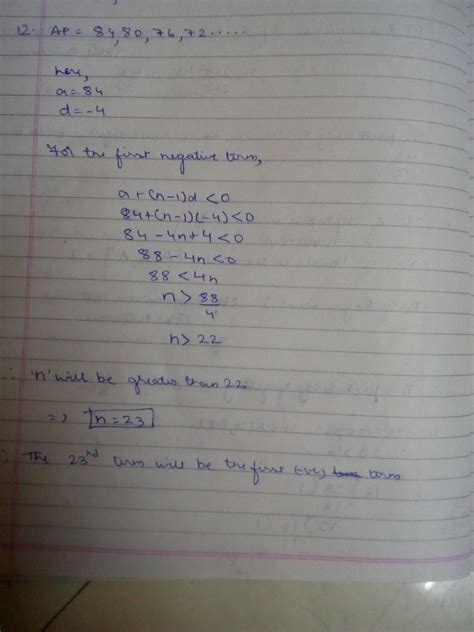 12. AP = 84, 80, 76, 72 ......
here,
a = 84
d = -4
For the first negative term,
a + (n-1)d < 0
84 + (n-1)(-4) < 0
84 - 4n + 4 < 0
88 - 4n < 0
88 < 4n
n > 88/4
n > 22
∴ 'n' will be greater than 22
=> n = 23
∴ The 23rd term will be the first (-ve) term